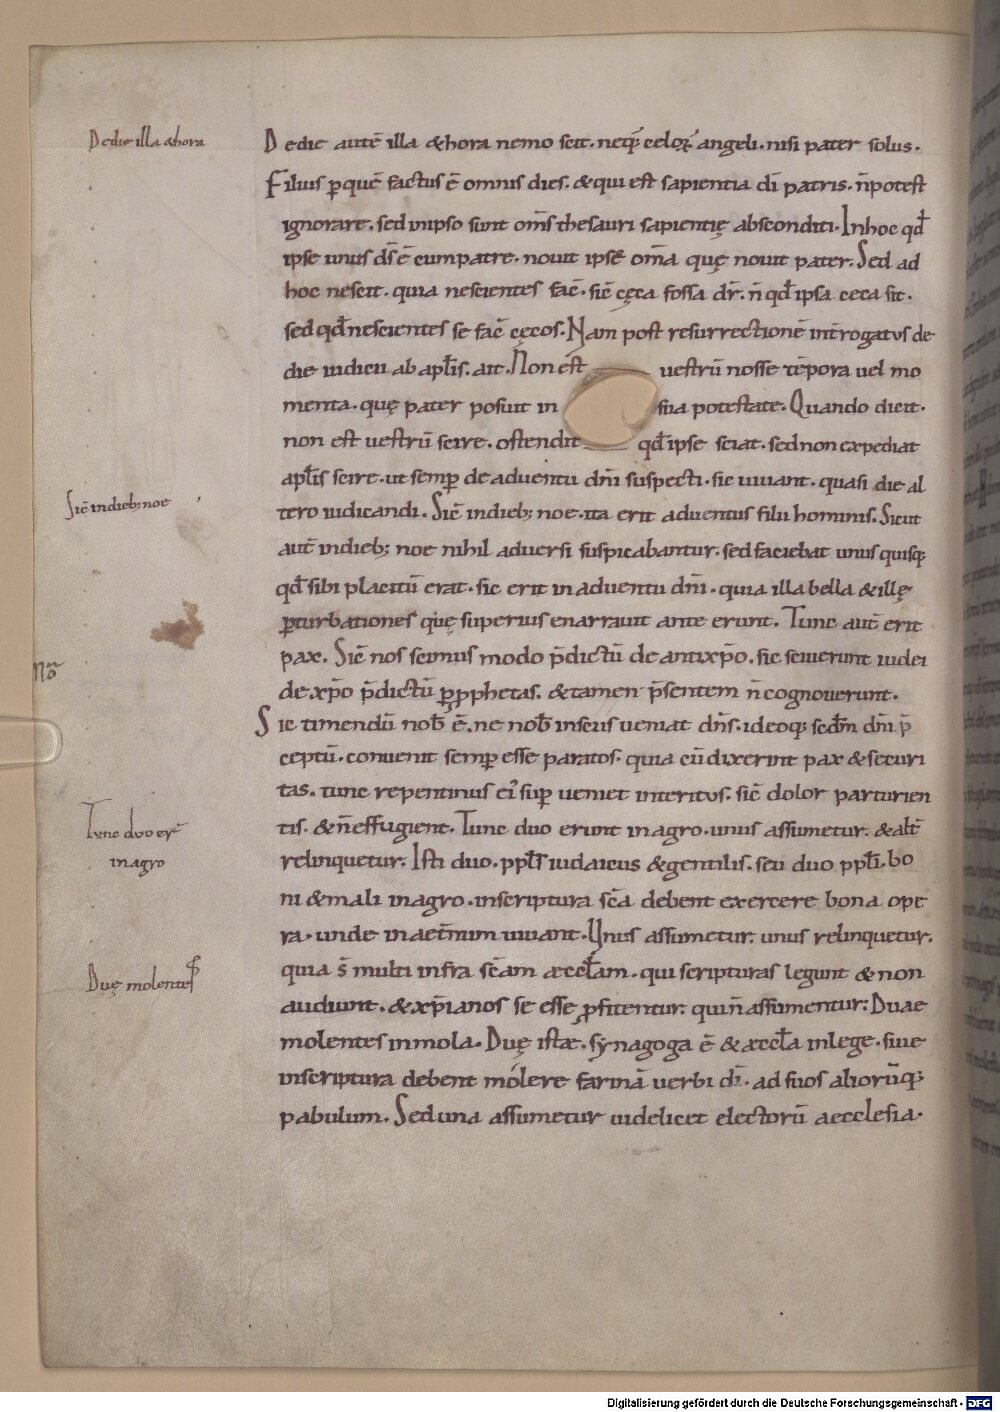 De die illa & hora
De die autē illa & hora nemo scit. neq; celoꝝ angeli. nisi pater solus.
Filius ꝑ quē factus ē omnis dies. & qui est sapientia dī patris. n̄ potest
ignorare. sed in ipso sunt om̄s thesauri sapientię absconditi. In hoc qđ
ipse unus dś ē cum patre. nouit ipsē om̄a quę nouit pater. Sed ad
hoc nescit. quia nescientes fac̄. sic̄ cęca fossa dr̄. n̄ qđ ipsa ceca sit.
sed qđ nescientes se fac̄ cęcos. Nam post resurrectionē int̄rogatus de
die iudicii ab apl̄is. ait. Non est uestrū nosse tēpora uel mo
menta. quę pater posuit in sua potestate. Quando dicit.
non est uestrū scire. ostendit qđ ipse sciat. sed non expediat
apl̄is scire. ut semꝑ de aduentu dn̄i suspecti. sic uiuant. quasi die al
Sic̄ in dieb; noe
tero iudicandi. Sic̄ in dieb; noe. ita erit aduentus filii hominis. Sicut
aut̄ in dieb; noe nihil aduersi suspicabantur. sed faciebat unus quisq;
qđ sibi placitū erat. sic erit in aduentu dn̄i. quia illa bella & illę
ꝑturbationes quę superius enarrauit ante erunt. Tunc aut̄ erit
pax. Sic̄ nos scimus modo p̄dictū de antixp̄o. sic sciuerunt iudei
de xp̄o p̄dictū ꝑ ꝓphetas. & tamen p̄sentem n̄ cognouerunt.
Sic timendū nob̄ ē. ne nob̄ insciis ueniat dn̄s. ideoq; scdm̄ dn̄i p̄
ceptū. conuenit semꝑ esse paratos. quia cū dixerint pax & securi
tas. tunc repentinus ei' suꝑ ueniet interitus. sic̄ dolor parturien
Tunc duo er̄t
in agro
tis. & n̄ effugient. Tunc duo erunt in agro. unus assumetur. & alt̄
relinquetur. Isti duo. ppl̄s iudaicus & gentilis. seu duo ppl̄i. bo
ni & mali in agro. in scriptura sc̄a debent exercere bona ope
ra. unde in aet̄num uiuant. Unus assumetur. unus relinquetur.
Duę molentes
quia s̄ multi infra sc̄am æccl̄am. qui scripturas legunt & non
audiunt. & xp̄ianos se esse ꝓfitentur. qui n̄ assumentur. Duae
molentes in mola. Duę istæ. synagoga ē & æccl̄a in lege. siue
in scriptura debent molere farinā uerbi dī. ad suos aliorūq;
pabulum. Sed una assumetur uidelicet electorū aecclesia.
Digitalisierung gefördert durch die Deutsche Forschungsgemeinschaft - DFG